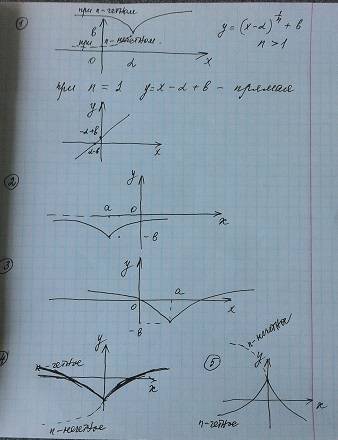 ① при n-четном
y = (x-a)^{1/n} + b
b
n > 1
при n-нечетном
0 a x
при n = 1 y = x - a + b - прямая
y
-a+b
a-b
x
② y
a 0 x
-b
3 y
a
0 x
-b
4 n-четное y
x
n-нечетное
⑤ n-нечетное
y
x
n-четное